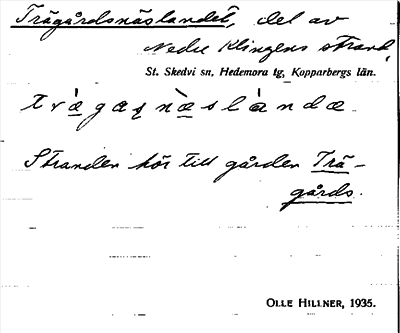 Trägårdsnäslandet, del av
Nedre Klingens strand,
St. Skedvi sn, Hedemora tg, Kopparbergs län.
Stranden hör till gården Trä-
gårds.
OLLE HILLNER, 1935.